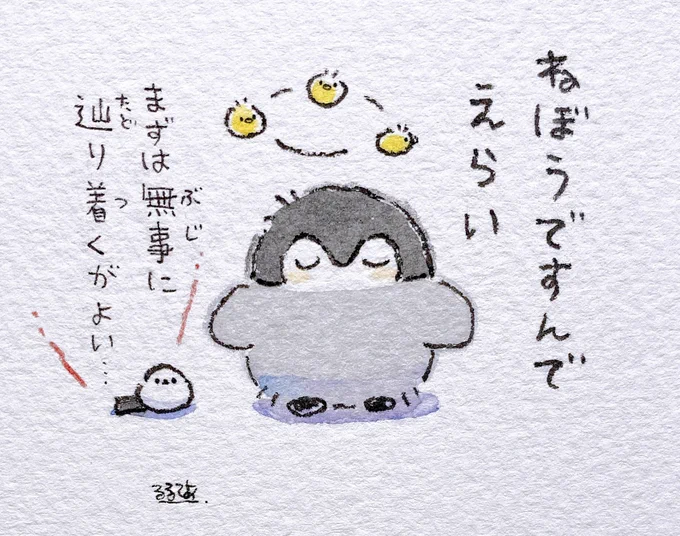 ねぼうですんで
えらい
ぶじ
まずは無事に
たど つ
辿り着くがよい…
るるてあ.